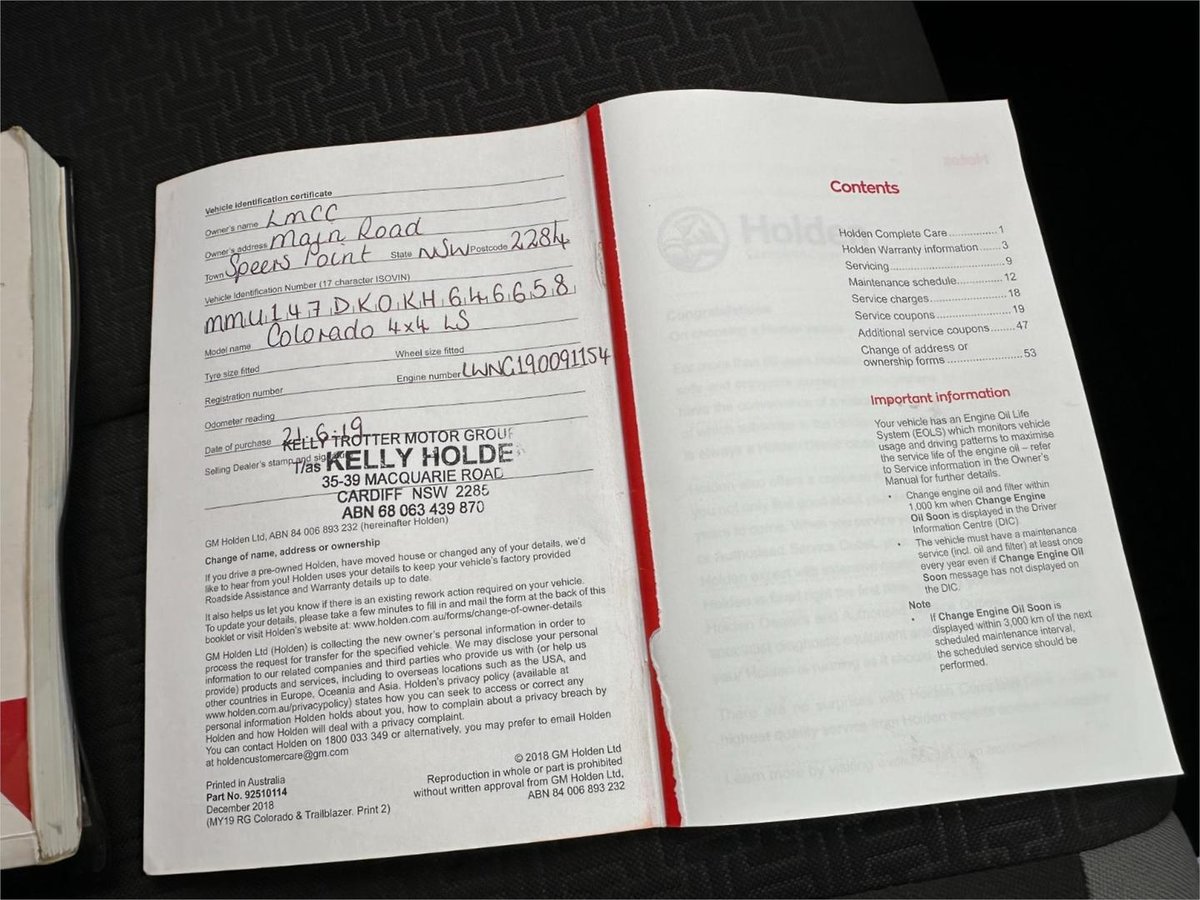 Vehicle identification certificate
Owner's name LMCC
Owner's address Main Road
Town Speers Point State NSW Postcode 2284
Vehicle Identification Number (17 character ISOVIN)
MMU147DK0KH646658
Model name Colorado 4x4 LS
Tyre size fitted Wheel size fitted
Registration number Engine number LWNG190091154
Odometer reading
Date of purchase 21.6.19
Selling Dealer's stamp and
KELLY TROTTER MOTOR GROUP
T/as KELLY HOLDE
35-39 MACQUARIE ROAD
CARDIFF NSW 2285
ABN 68 063 439 870
GM Holden Ltd, ABN 84 006 893 232 (hereinafter Holden)
Change of name, address or ownership
If you drive a pre-owned Holden, have moved house or changed any of your details, we'd
like to hear from you! Holden uses your details to keep your vehicle's factory provided
Roadside Assistance and Warranty details up to date.
It also helps us let you know if there is an existing rework action required on your vehicle.
To update your details, please take a few minutes to fill in and mail the form at the back of this
booklet or visit Holden's website at: www.holden.com.au/forms/change-of-owner-details
GM Holden Ltd (Holden) is collecting the new owner's personal information in order to
process the request for transfer for the specified vehicle. We may disclose your personal
information to our related companies and third parties who provide us with (or help us
provide) products and services, including to overseas locations such as the USA, and
other countries in Europe, Oceania and Asia. Holden's privacy policy (available at
www.holden.com.au/privacypolicy) states how you can seek to access or correct any
personal information Holden holds about you, how to complain about a privacy breach by
Holden and how Holden will deal with a privacy complaint.
You can contact Holden on 1800 033 349 or alternatively, you may prefer to email Holden
at holdencustomercare@gm.com
Printed in Australia
Part No. 92510114
December 2018
(MY19 RG Colorado & Trailblazer. Print 2)
© 2018 GM Holden Ltd
Reproduction in whole or part is prohibited
without written approval from GM Holden Ltd,
ABN 84 006 893 232
Contents
Holden Complete Care 1
Holden Warranty information 3
Servicing 9
Maintenance schedule 12
Service charges 18
Service coupons 19
Additional service coupons 47
Change of address or
ownership forms 53
Important information
Your vehicle has an Engine Oil Life
System (EOLS) which monitors vehicle
usage and driving patterns to maximise
the service life of the engine oil – refer
to Service information in the Owner's
Manual for further details.
• Change engine oil and filter within
1,000 km when Change Engine
Oil Soon is displayed in the Driver
Information Centre (DIC)
• The vehicle must have a maintenance
service (incl. oil and filter) at least once
every year even if Change Engine Oil
Soon message has not displayed on
the DIC.
Note
• If Change Engine Oil Soon is
displayed within 3,000 km of the next
scheduled maintenance interval,
the scheduled service should be
performed.